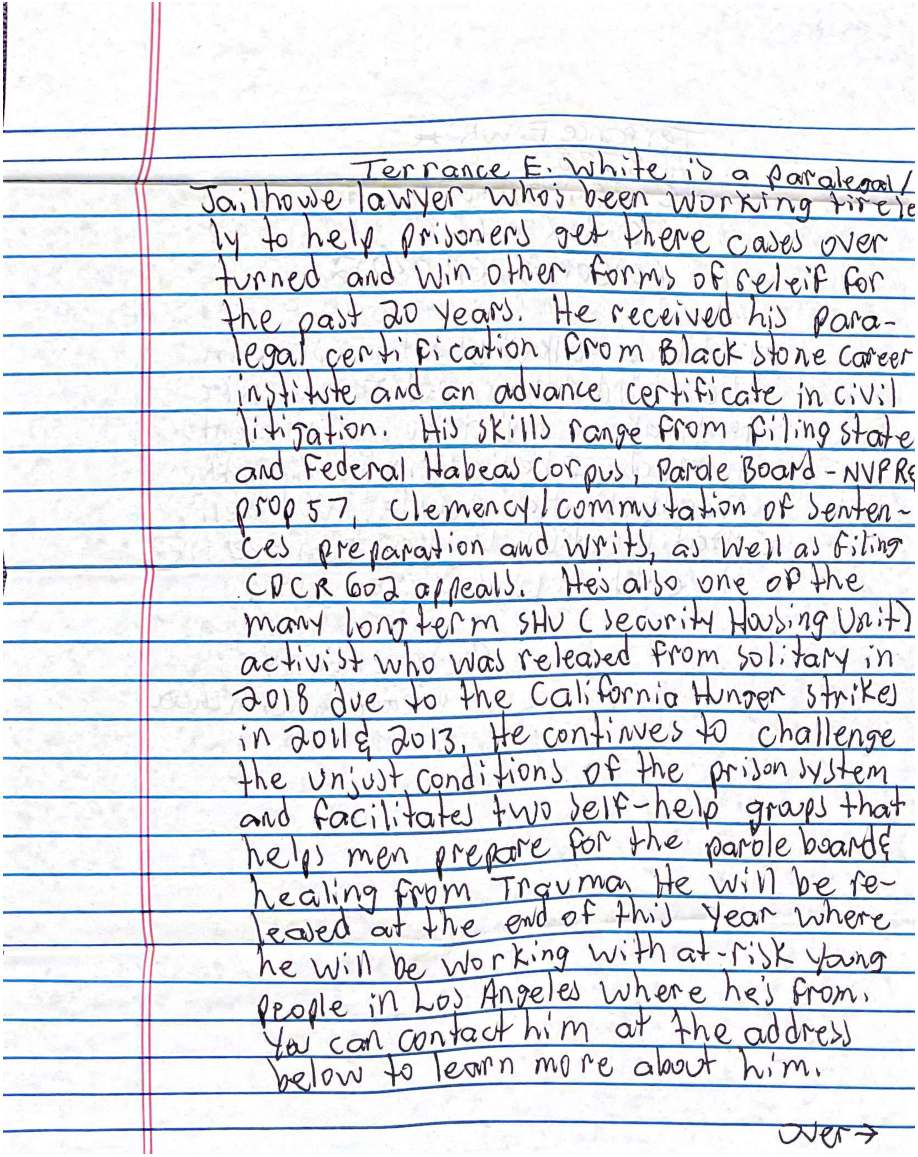 Terrance E. White is a paralegal/
Jailhouse lawyer who's been working tirele
ly to help prisoners get there cases over
turned and win other forms of releif for
the past 20 years. He received his para-
legal certification from Black stone career
institute and an advance certificate in civil
litigation. His skills range from filing state
and Federal Habeas Corpus, Parole Board - NVPR&
prop 57, Clemency/commutation of senten-
ces preparation and writs, as well as filing
CDCR 602 appeals. He's also one of the
many long term SHU (Security Housing Unit)
activist who was released from solitary in
2018 due to the California Hunger strikes
in 2011 & 2013. He continues to challenge
the unjust conditions of the prison system
and facilitates two self-help groups that
helps men prepare for the parole board &
healing from Trauma. He will be re-
leased at the end of this year where
he will be working with at-risk young
people in Los Angeles where he's from.
You can contact him at the address
below to learn more about him.
over →